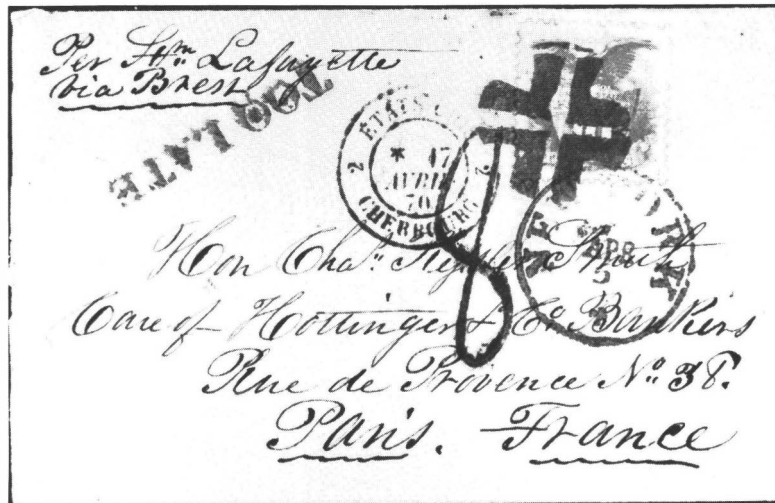 Per Stm Lafayette
via Brest
TOO LATE
ÉTATS
2 * 17 2
AVRIL
70
CHERBOURG
8
Hon Chas
Care of Hottinger & Co Bankers
Rue de Provence No 38.
Paris. France